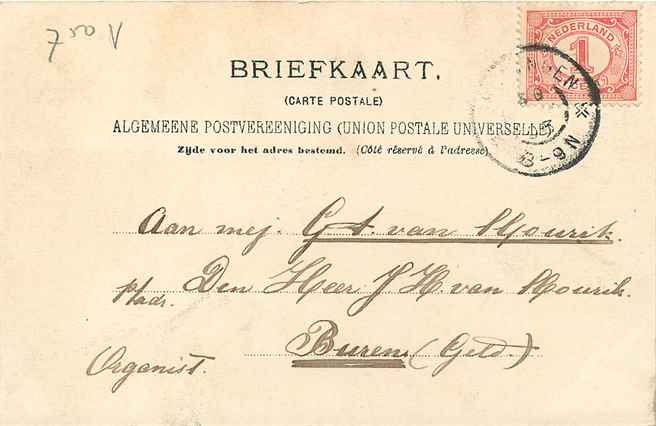 NEDERLAND
1
CENT
BRIEFKAART.
(CARTE POSTALE)
ALGEMEENE POSTVEREENIGING (UNION POSTALE UNIVERSELLE)
Zijde voor het adres bestemd. (Côté réservé à l'adresse)
8-9N
Aan mej. G. A. van Mourik.
p/adr. Den Heer J H. van Mourik.
Organist. Buren (Geld.)